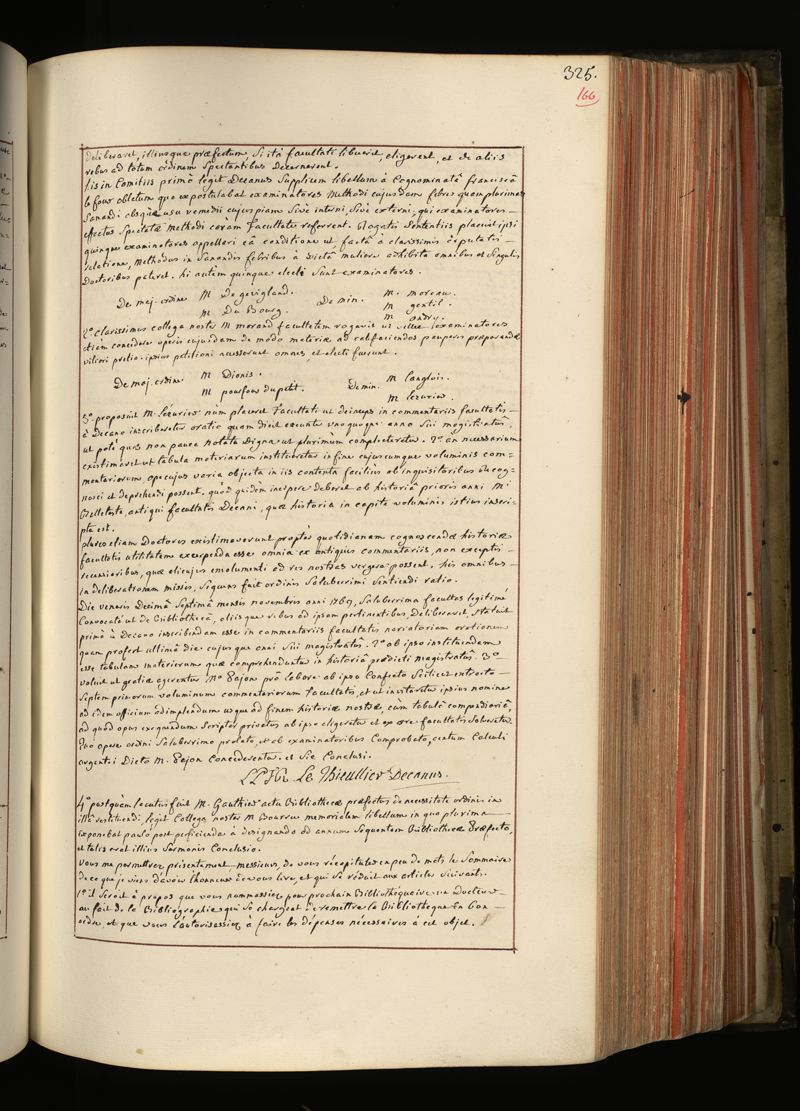 325.
166
deliberaret, illiusque præfectum, si ità facultati libueret, eligerent, et de aliis
rebus ad totum ordinem spectantibus decernerent.
iis in Comitiis primò legit Decanus supplicem libellum à Cognominatâ franciscâ
le four obletum quo expostulabat examinatores Methodi cujusdam febres quamplurimas
Sanandi absque usu remedii cujuspiam sivè interni, sivè externi, qui examinatores
effectus spectatæ Methodi coram facultate referrent. Rogatis sententiis placuit ipsi
quinque examinatores appellari eâ conditione ut factâ a clarissimis deputatis
relatione, Methodus in sanandis febribus à dictâ muliere adhibita omnibus et singulis
Doctoribus pateret. hi autem quinque electi sunt examinatores.
De maj. ordine M De gevigland. De min. M. moreau.
M Du Bourg. M gentil.
M andry.
2° Clarissimus collega noster M morand facultatem rogavit ut vellet examinatores
etiam concedere operis cujusdam de modo materiæ ad calfaciendos pauperes præparandæ
viliori pretio. ipsius petitioni accesserunt omnes, et electi fuerunt.
De maj. ordine M Dionis. De min. M langlois.
M pourfour du petit. M lezurier.
3° proposuit M. lezurier nùm placeret facultati ut deinceps in commentariis facultatis
à Decano inscriberetur oratio quam dicit exeunte unoquoque anno sui magistratûs,
ut potè quæ non pauca notatu digna ut plurimum complecteretur. 2° an necessarium
existimaret ut tabula materiarum institueretur in fine cujuscunque voluminis com=
mentariorum ope cujus varia objecta in iis contenta faciliùs ab inquisitoribus cog-
nosci et deprehendi possent. quod quidem incipere deberet ab historiâ prioris anni M.
Belleteste, antiqui facultatis Decani, quæ historia in capite voluminis istius inscri-
pta est.
plures etiam Doctores existimaverunt proptèr quotidianam cognoscendæ historiæ
facultatis utilitatem excerpenda esse omnia ex antiquis commentariis, non exceptis
recensioribus, quæ alicujus emolumenti ad res nostras vergere possent. his omnibus
in deliberationem missis, sequens fuit ordinis saluberrimi sentiendi ratio.
Die veneris Decimâ septimâ mensis novembris anni 1769, saluberrima facultas legitimè
Convocata ut de Bibliothecâ, aliisque rebus ad ipsam pertinentibus, deliberaret, statuit
primò à Decano inscribendam esse in commentariis facultatis narratoriam orationem
quam profert ultimâ die cujusque anni sui magistratûs. 2° ab ipso instituendam
esse tabulam materierum quæ comprehenduntur in historiâ prædicti magistratûs. 3°
voluit ut gratiæ agerentur M° Pajon prô labore ab ipso confecto scilicet extracto
septem priorum voluminum commentariorum facultatis, et ut invitaretur ipsius nomine
ad idem officium adimplendum usque ad finem historiæ nostræ, cum tabulâ compendiariâ,
ad quod opus exequendum scriptor privatus ab ipso eligeretur et ex ære facultatis solveretur.
Quo opere ordini saluberrimo probato, et ab examinatoribus comprobato, centum calculi
argentei dicto M. Pajon concederentur. et sic conclusi.
L.P.F.R. Le Thieullier Decanus.
4° postquàm locutus fuit M. Gauthier actu Bibliothecæ præfectus de necessitate ordinis in
illâ restituendi, legit collega noster M Bourru memorialem libellum in quo plurima
exponebat paulò post perficienda à designando ad annum sequentem Bibliothecæ Præfecto,
et talis erat illius sermonis conclusio.
vous me permettrez présentement messieurs, de vous récapituler en peu de mots le sommaire
de ce que je viens d'avoir l'honneur de vous lire, et qui se réduit aux articles suivants.
1° il seroit à propos que vous nommassiez pour prochain Bibliothéquaire un Docteur
au fait de la Bibliographie, qui se chargeat de remettre la Bibliothèque En bon
ordre, et que vous l'autorisassiez à faire les dépenses nécessaires à cet objet.